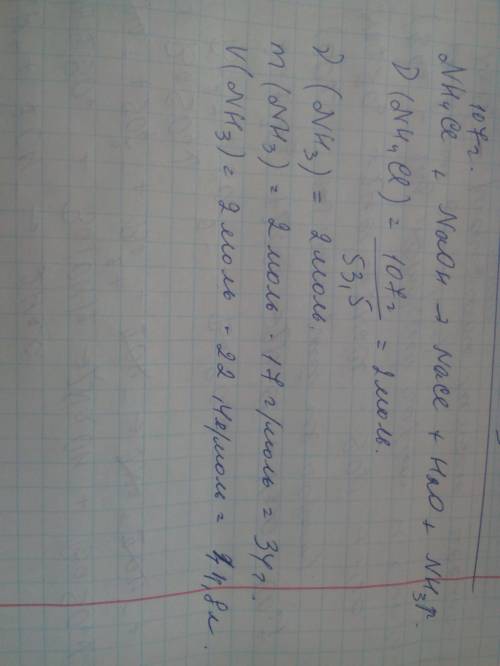 107г.
NH4Cl + NaOH → NaCl + H2O + NH3↑.
ν(NH4Cl) = 107г / 53,5 = 2моль.
ν(NH3) = 2моль.
m(NH3) = 2моль · 17г/моль = 34г.
V(NH3) = 2моль · 22,4л/моль = 44,8л.